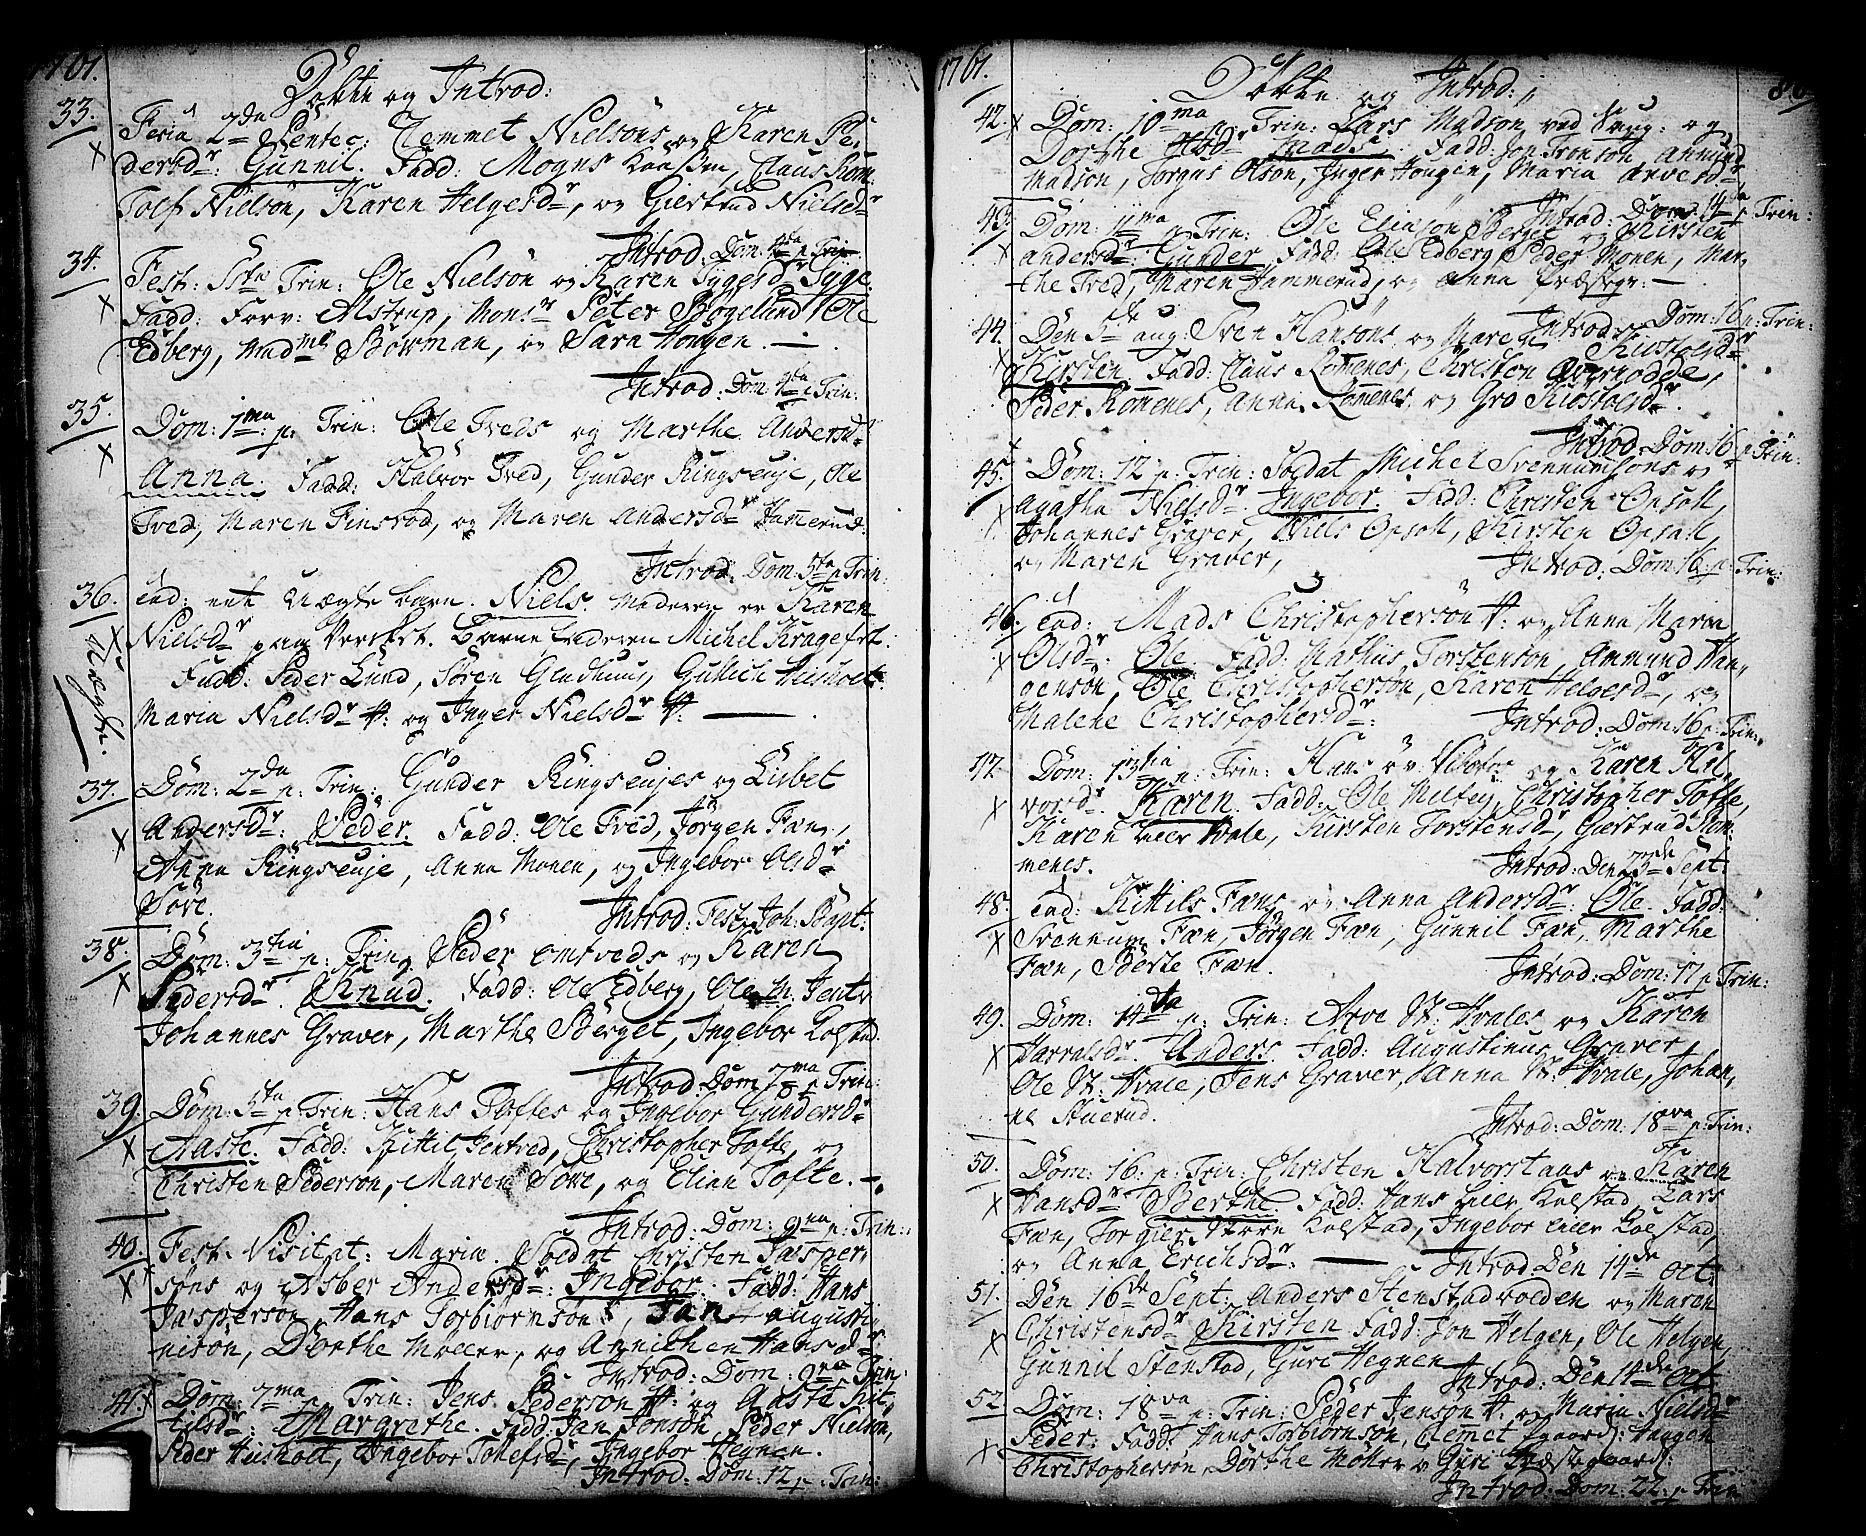 1761.
Döbte og Introd:
33. Feria 2da Pentec: Clemmet Nielsöns og Karen Pe,
dersdr: Gunnil. Fadd: Mogns Claus Rom.
Tolf Nielsön, Karen Helgesdr, og Giertrud Nielsdr
Introd: Dom: 4ta p. Trin:
34. Fest: Sstæ Trin: Ole Nielsön og Karen Tygesdr Tyge.
Fadd: Forv: Alstrup, Monsr Peter Bögelund, Ole
Edberg, Madme Bowman, og Sara Hougen. —
Introd: Dom: 4ta p. Trin:
35. Dom: 1ma p: Trin: Ole Treds og Marthe Andersdr
Anna. Fadd: Halvor Tred, Gunder Ringseuje, Ole
Tred, Maren Finsrod, og Maren Andersdr Hamerud:
Introd: Dom: 5ta p Trin:
36. Eod: eet uægte barn. Niels. Moderen er Karen
Nielsdr paa Værket. Barnefaderen Michel Kragefet.
Uægte.
Fadd: Peder Lund, Sören Gludhuus, Gullich Huusholt.
Maria Nielsdr W: og Inger Nielsdr W: —
37. Dom: 2da p: Trin: Gunder Ringseujes og Lisbet
Andersdr: Peder. Fadd: Ole Tred, Jörgen Fæn,
Anna Ringseuje, Anna Monen, og Ingebor Olsdr
Sove.
Introd: Fest: Joh: Bapt:
38. Dom: 3tia p: Trin: Peder Omtveds og Karen
Pedersdr. Knud. Fadd: Ole Edberg, Ole M. Jentv
Johannes Graver, Marthe Berget, Ingebor Kolstad.
Introd: Dom 7ma p Trin:
39. Dom: 5ta p. Trin: Hans Toftes og Ingebor Gundersdr
Aaste. Fadd: Kittil Jentved, Christopher Tofte, og
Christen Pederson, Maren Sove, og Elian Tofte. —
Introd: Dom: 9na p: Trin:
40. Fest: Visitat: Mariæ. Soldat Christen Jasper,
söns og Asber Andersdr: Ingebor. Fadd: Hans
Jaspersön, Hans Torbiornson, Jan Augusti
nisön, Dorthe Möller, og Annichen Hansdr
Introd: Dom: 9na p Trin:
41. Dom: 7ma p. Trin: Jens Pederson W: og Aaste Kit,
tilsdr: Margrethe. Fadd: Jan Jonsön, Peder Nielsön,
Peder Huusholt, Ingebor Tollefsdr, Ingebor Hegnen.
Introd: Dom: 12 p: Trin:
1761.
Döbte og Introd:
42. Dom: 10ma p. Trin: Lars Madson ved Brug: og
Dorthe Mads. Fadd: Jon Tronson, Amund
Madson, Torgus Olson, Inger Hougen, Maria Arvesdr
Introd: Dom: 14ta p Trin:
43. Dom: 11ma p Trin: Ole Elinson Berget og Kirsten
Andersdr: Gunder. Fadd: Ole Edberg, Peder Monen, Mar,
the Tred, Maren Hammerud, og Anna Præstegr: —
Introd: Dom: 16 p: Trin:
44. Den 5te Aug: Sven Hansöns og Maren Kistolsdr
Kirsten. Fadd: Claus Romenes, Christen Overrodde,
Peder Romenes, Anna Romenes og Gro Kistolsdr.
Introd: Dom: 16 p Trin:
45. Dom: 12 p. Trin: Soldat Michel Svennumsons og
Agatha Nielsdr. Ingebor. Fadd: Christen Opsall,
Johannes Graver, Niels Opsall, Kirsten Opsall,
og Maren Graver,
Introd: Dom: 16 p. Trin:
46. Eod: Mads Christopherson W: og Anna Maria
Olsdr: Ole. Fadd: Mathiis Torstenson, Ammund Han,
senson, Ole Christopherson, Karen Helgesdr, og
Malehe Christophersdr:
Introd: Dom: 16 p. Trin:
47. Dom: 13tia p: Trin: Hans öv: Viborgs og Karen Hal,
vorsdr. Karen. Fadd: Ole Melteig, Christopher Tofte,
Karen Leer Hvale, Kirsten Torstensdr, Giertrud Rom
menes.
Introd: Den 23de Sept:
48. Eod: Kittils Fæns og Anna Andersdr: Ole. Fadd:
Svennum Fæn, Jörgen Fæn, Gunnil Fæn, Marthe
Fæn, Berte Fæn.
Introd: Dom: 17 p Trin:
49. Dom: 14ta p: Trin: Arve St: Hvales og Karen
Harralsdr. Anders. Fadd: Augustinus Graver,
Ole St: Hvale, Jens Graver, Anna St: Hvale, Johan,
ne Stuerud.
Introd: Dom: 18va p: Trin:
50. Dom: 16. p. Trin: Christen Halvorstaus og Karen
Hansdr Berthe. Fadd: Hans Leer Kolstad, Lars
Fæn, Torgier Store Kolstad, Ingebor Leer Kolstad,
og Anna Erichsdr: —
Introd Den 14de Oct:
51. Den 16de Sept: Anders Stenstadvolden og Maren
Christensdr Kirsten. Fadd: Jon Helgen, Ole Helgen,
Gunnil Stenstad, Guri Hegnen
Introd: Den 14de Oct
52. Dom: 18va p: Trin: Peder Jenson W. og Maria Nielsdr
Peder. Fadd: Hans Torbiornson, Clemet Hougen
Christopherson, Dorthe Möller og Guri Præstegaard:
Introd: Dom: 22. p Trin